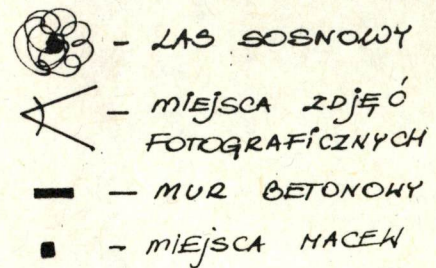 - LAS SOSNOWY
- MIEJSCA ZDJĘĆ
FOTOGRAFICZNYCH
- MUR BETONOWY
- MIEJSCA MACEW